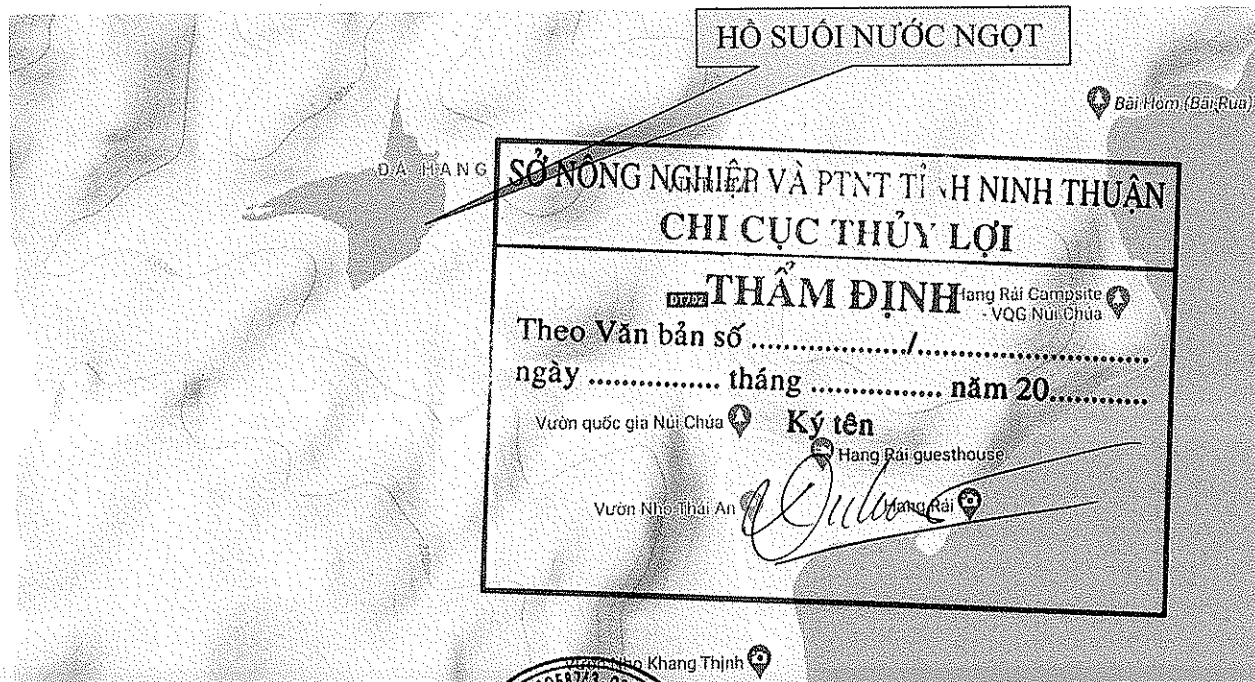 HỒ SUỐI NƯỚC NGỌT
Bãi Hõm (Bãi Rùa)
ĐÁ HANG
SỞ NÔNG NGHIỆP VÀ PTNT TỈNH NINH THUẬN
CHI CỤC THỦY LỢI
THẨM ĐỊNH
DT702
Hang Rái Campsite
- VQG Núi Chúa
Theo Văn bản số ................../..............................
ngày ................ tháng ................ năm 20............
Vườn quốc gia Núi Chúa
Ký tên
Hang Rái guesthouse
Vườn Nho Thái An
Hang Rái
Vườn Nho Khang Thịnh